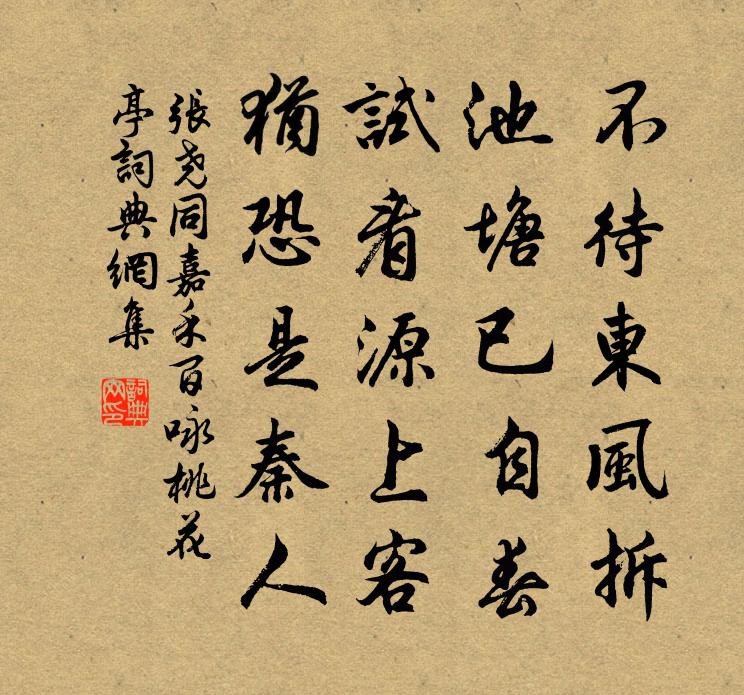 不待東風拆
池塘已自春
試看源上客
猶恐是秦人
張尧同嘉禾百咏桃花
亭詞典網集
詞典
网印